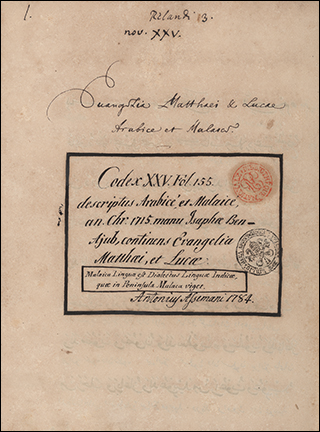 1.
Relandi 13.
nov. XXV.
Evangelia Matthaei & Lucae
Arabice et Malaice.
Codex XXV. Fol. 155.
descriptus Arabicè et Malaicè,
an. Chr. 1715. manu Isaphae Ben-
Ajub, continens Evangelia
Matthaei, et Lucae
Malaica Lingua est Dialectus Linguae Indicae,
quae in Peninsula Malaca viget.
Antonius Assemani 1784.